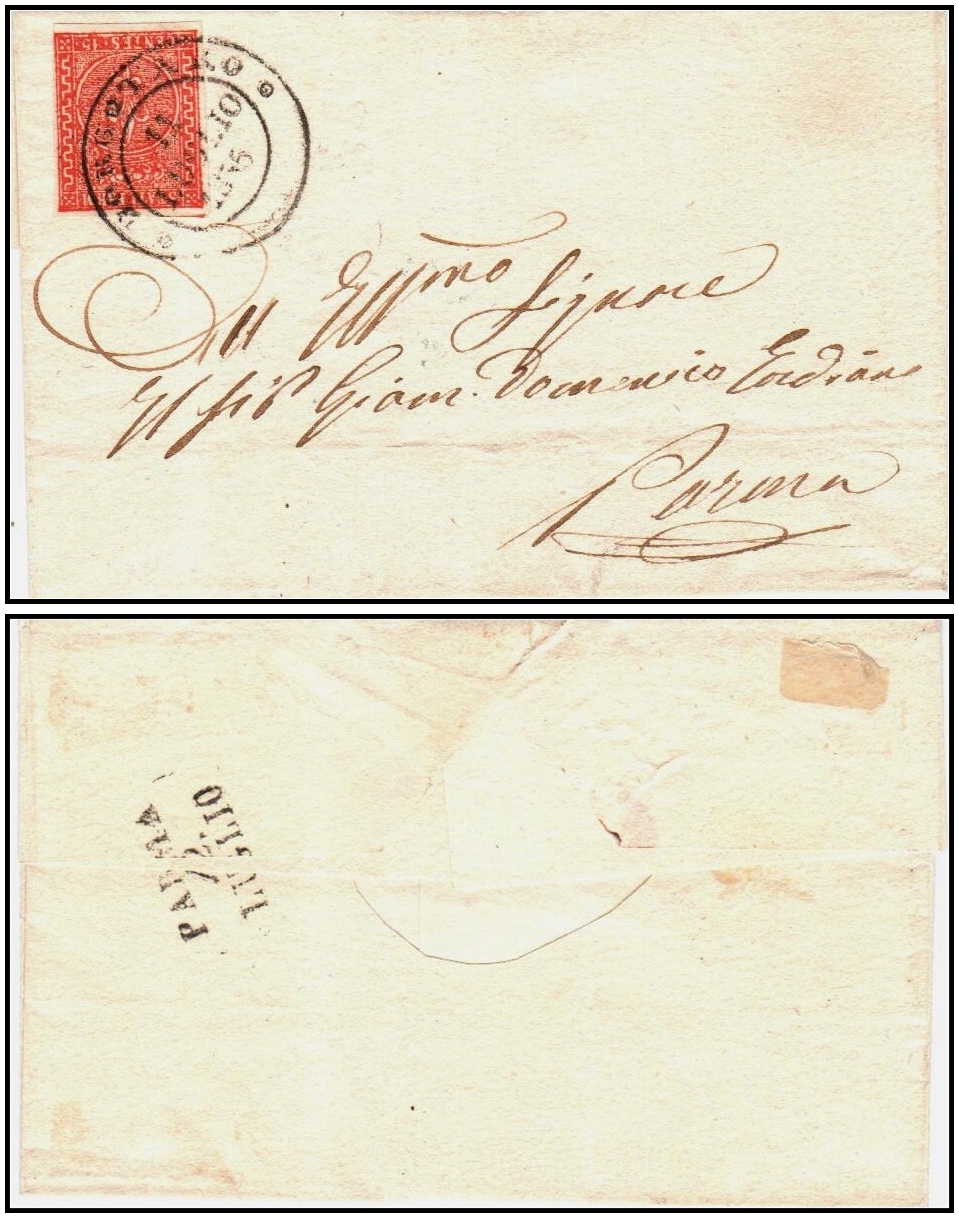 CENTES. 15
BORGOTARO
11
LUGLIO
185
All Ill.mo Signore
Il Sig.r Giam. Domenico
Parma
PARMA
12
LUGLIO